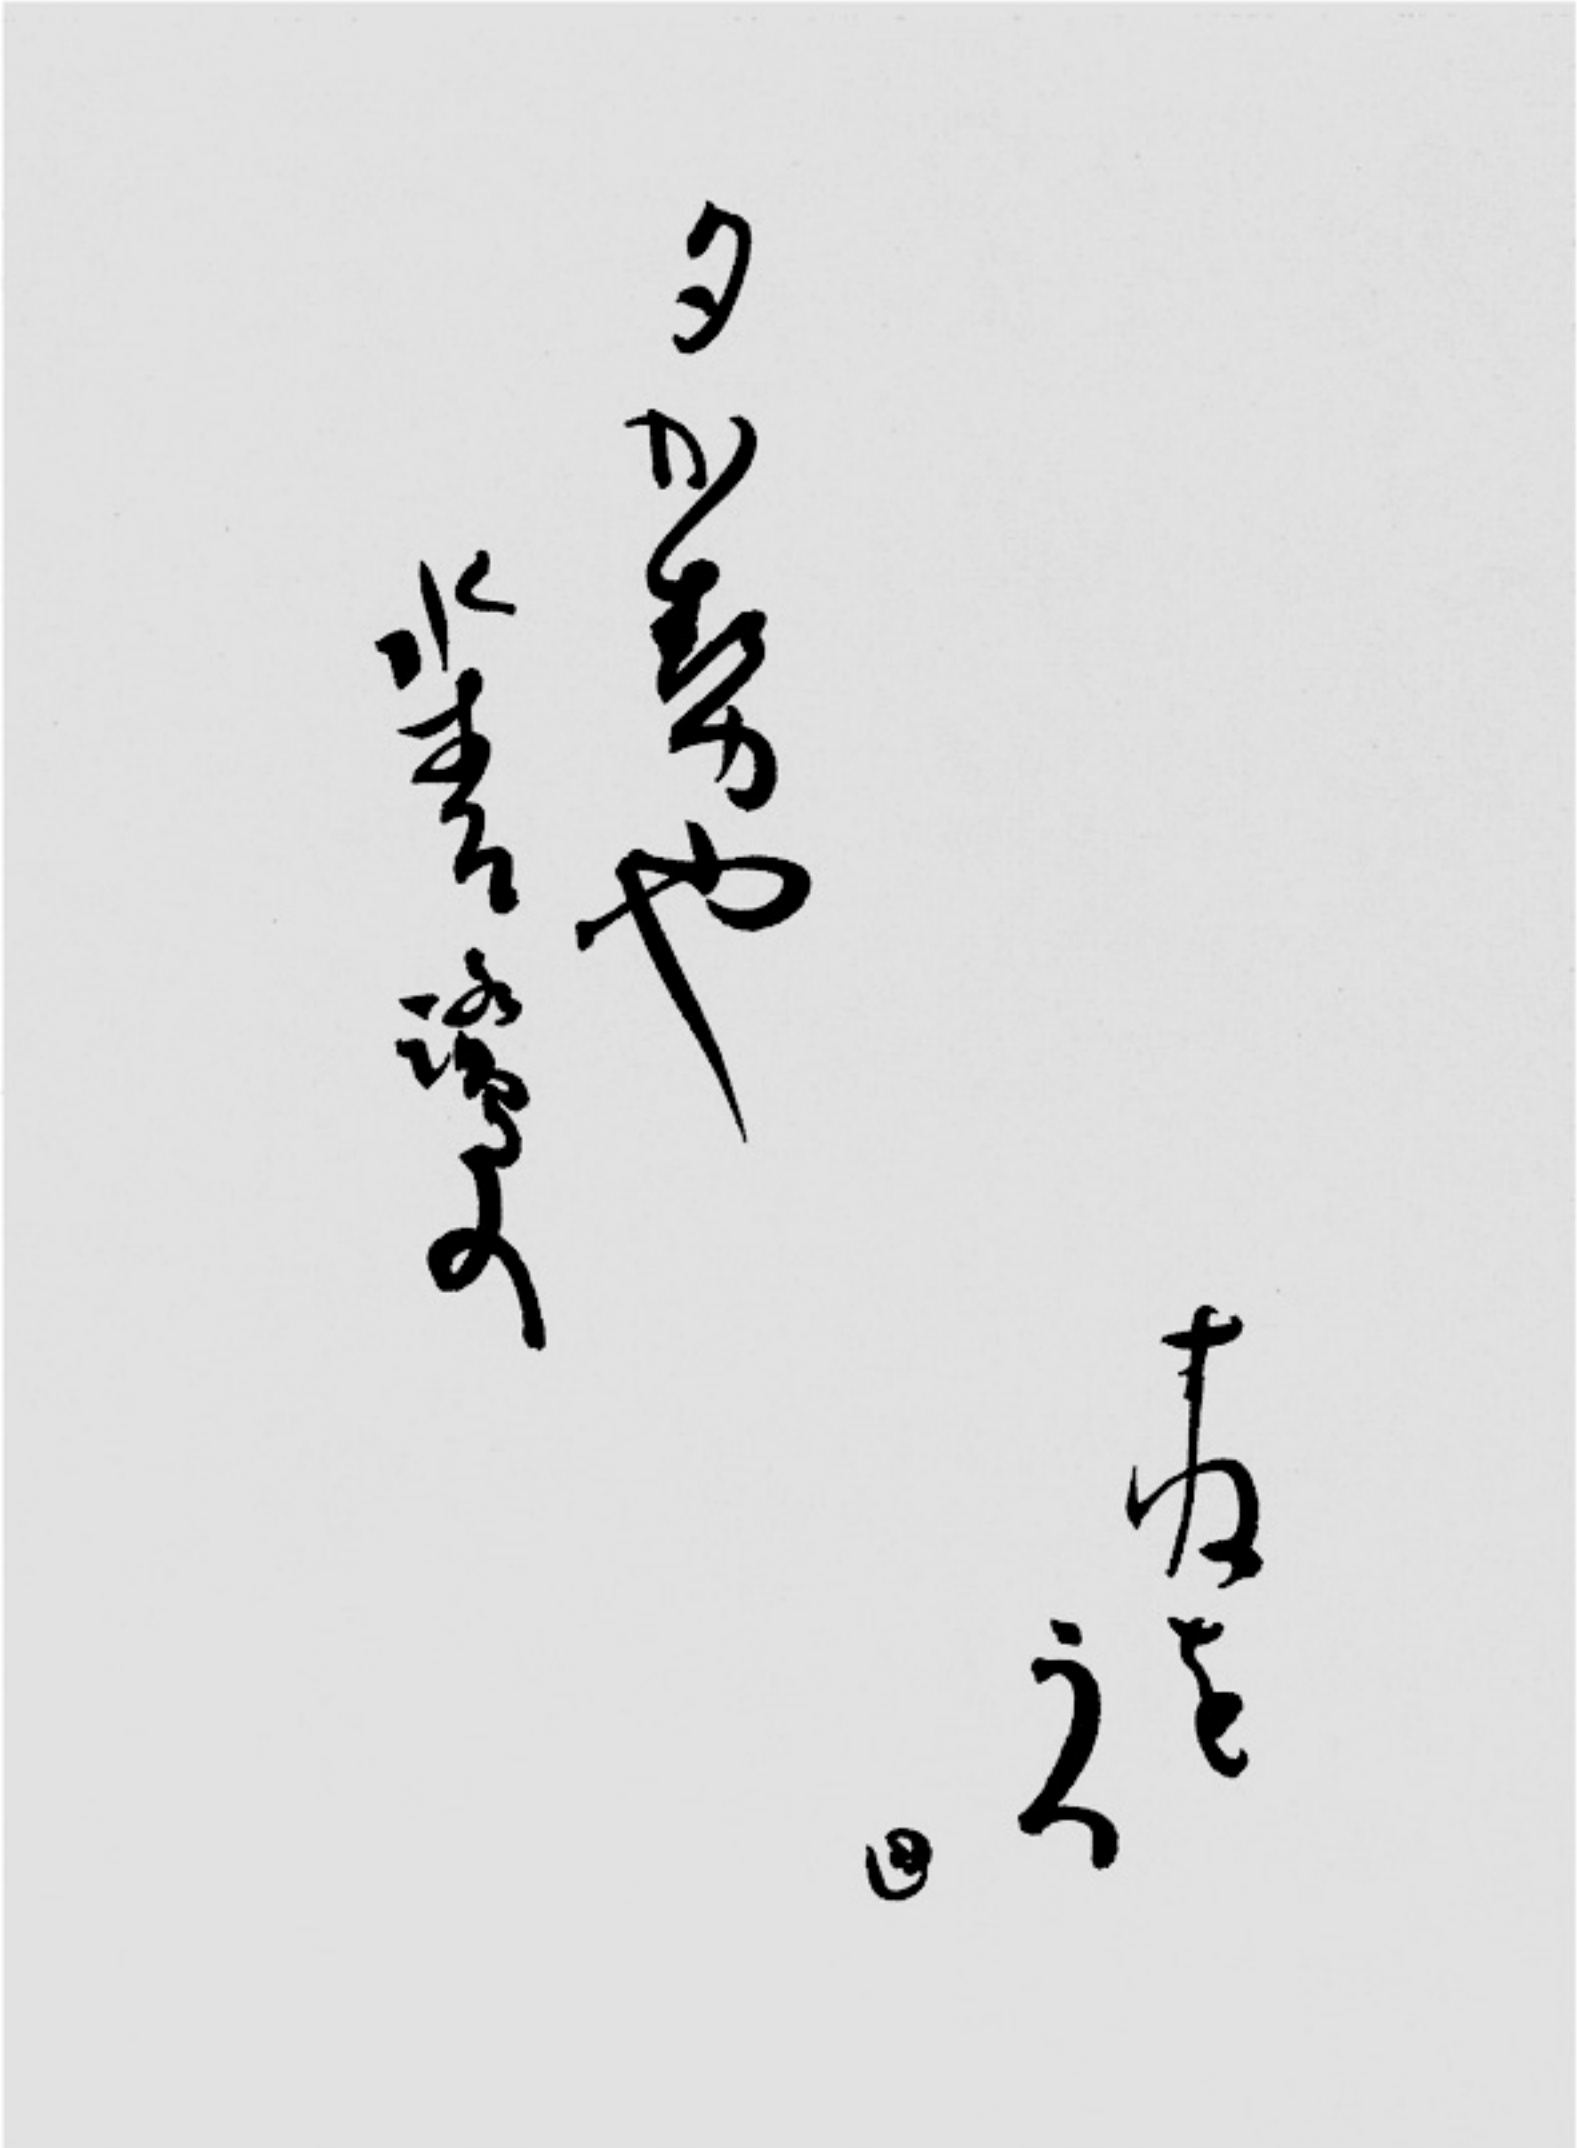 夕か勢や
水青鷺の
を
うつ